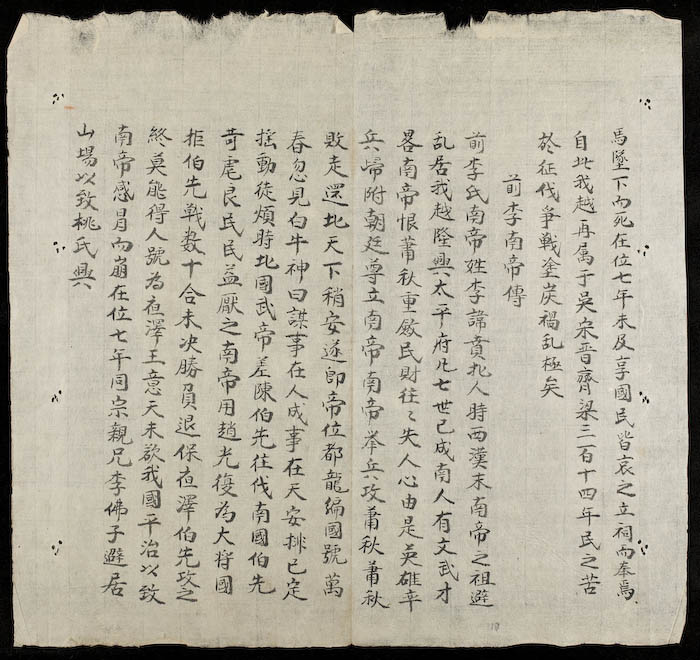 馬墜下而死在位七年未及享國民皆哀之立祠而奉焉
自此我越再属于吳宋晉齊梁三百十四年民之苦
於征伐爭戰塗炭禍乱極矣
前李南帝傳
前李氏南帝姓李諱賁北人時西漢末南帝之祖避
乱居我越陞興太平府凡七世已成南人有文武才
畧南帝恨蕭秋重斂民財往〻失人心由是英雄率
兵㱕附朝廷尊立南帝南帝举兵攻蕭秋蕭秋
敗走還北天下稍安遂即帝位都龍編國號萬
春忽見白牛神曰謀事在人成事在天安排已定
摇動徒煩時北國武帝差陳伯先往伐南國伯先
苛虐良民民益厭之南帝用趙光復為大將國
拒伯先戰数十合未决勝負退保夜澤伯先攻之
終莫能得人號為夜澤王意天未欲我國平治以致
南帝感冒而崩在位七年同宗親兄李佛子避居
山場以致桃氏興
18